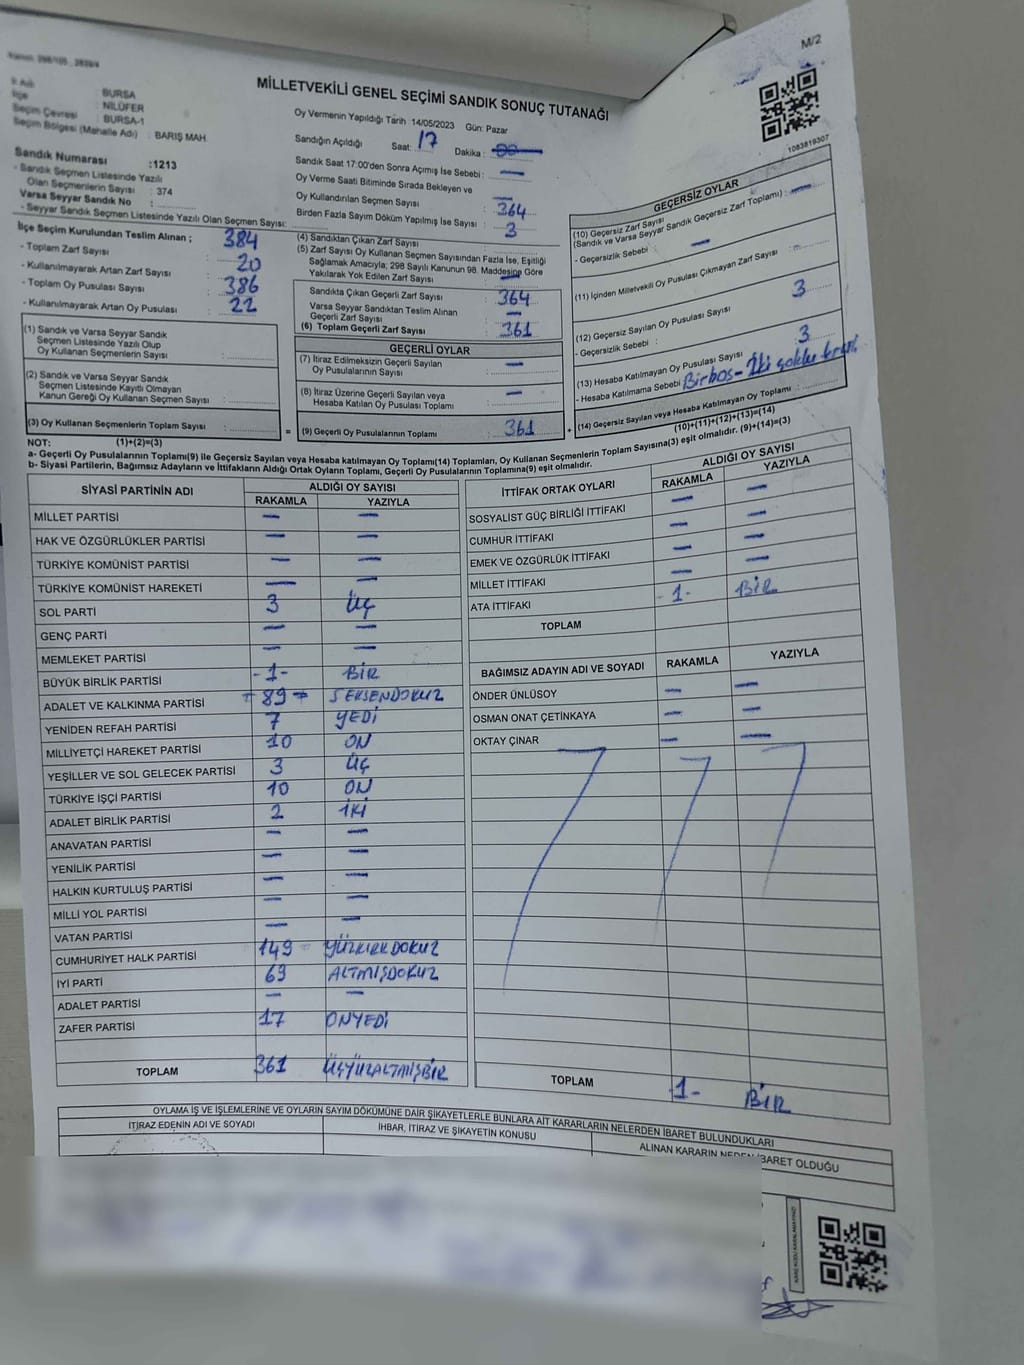 M/2
MİLLETVEKİLİ GENEL SEÇİMİ SANDIK SONUÇ TUTANAĞI
1083819307
İl Adı : BURSA
İlçe : NİLÜFER
Seçim Çevresi : BURSA-1
Seçim Bölgesi (Mahalle Adı) : BARIŞ MAH.
Sandık Numarası :1213
- Sandık Seçmen Listesinde Yazılı
Olan Seçmenlerin Sayısı : 374
Varsa Seyyar Sandık No :
- Seyyar Sandık Seçmen Listesinde Yazılı Olan Seçmen Sayısı:
İlçe Seçim Kurulundan Teslim Alınan ;
- Toplam Zarf Sayısı : 384
- Kullanılmayarak Artan Zarf Sayısı : 20
- Toplam Oy Pusulası Sayısı : 386
- Kullanılmayarak Artan Oy Pusulası : 22
(1) Sandık ve Varsa Seyyar Sandık
Seçmen Listesinde Yazılı Olup
Oy Kullanan Seçmenlerin Sayısı :
(2) Sandık ve Varsa Seyyar Sandık
Seçmen Listesinde Kayıtlı Olmayan
Kanun Gereği Oy Kullanan Seçmen Sayısı :
(3) Oy Kullanan Seçmenlerin Toplam Sayısı :
Oy Vermenin Yapıldığı Tarih :14/05/2023 Gün: Pazar
Sandığın Açıldığı Saat: 17 Dakika : 00
Sandık Saat 17:00'den Sonra Açımış İse Sebebi : —
Oy Verme Saati Bitiminde Sırada Bekleyen ve
Oy Kullandırılan Seçmen Sayısı : —
Birden Fazla Sayım Döküm Yapılmış İse Sayısı : 364
(4) Sandıktan Çıkan Zarf Sayısı : 3
(5) Zarf Sayısı Oy Kullanan Seçmen Sayısından Fazla İse, Eşitliği
Sağlamak Amacıyla; 298 Sayılı Kanunun 98. Maddesine Göre
Yakılarak Yok Edilen Zarf Sayısı : —
Sandıkta Çıkan Geçerli Zarf Sayısı : 364
Varsa Seyyar Sandıktan Teslim Alınan
Geçerli Zarf Sayısı : —
(6) Toplam Geçerli Zarf Sayısı : 361
GEÇERLİ OYLAR
(7) İtiraz Edilmeksizin Geçerli Sayılan
Oy Pusulalarının Sayısı : —
(8) İtiraz Üzerine Geçerli Sayılan veya
Hesaba Katılan Oy Pusulası Toplamı : —
= (9) Geçerli Oy Pusulalarının Toplamı : 361 +
GEÇERSİZ OYLAR
(10) Geçersiz Zarf Sayısı
(Sandık ve Varsa Seyyar Sandık Geçersiz Zarf Toplamı) : —
- Geçersizlik Sebebi : —
(11) İçinden Milletvekili Oy Pusulası Çıkmayan Zarf Sayısı :
(12) Geçersiz Sayılan Oy Pusulası Sayısı : 3
- Geçersizlik Sebebi :
(13) Hesaba Katılmayan Oy Pusulası Sayısı : 3
- Hesaba Katılmama Sebebi
(14) (Geçersiz Sayılan veya Hesaba Katılmayan Oy Toplamı :
(10)+(11)+(12)+(13)=(14)
NOT: (1)+(2)=(3)
a- Geçerli Oy Pusulalarının Toplamı(9) ile Geçersiz Sayılan veya Hesaba katılmayan Oy Toplamı(14) Toplamları, Oy Kullanan Seçmenlerin Toplam Sayısına(3) eşit olmalıdır. (9)+(14)=(3)
b- Siyasi Partilerin, Bağımsız Adayların ve İttifakların Aldığı Ortak Oyların Toplamı, Geçerli Oy Pusulalarının Toplamına(9) eşit olmalıdır.
SİYASİ PARTİNİN ADI ALDIĞI OY SAYISI
RAKAMLA YAZIYLA
MİLLET PARTİSİ — —
HAK VE ÖZGÜRLÜKLER PARTİSİ — —
TÜRKİYE KOMÜNİST PARTİSİ — —
TÜRKİYE KOMÜNİST HAREKETİ — —
SOL PARTİ 3 ÜÇ
GENÇ PARTİ — —
MEMLEKET PARTİSİ — —
BÜYÜK BİRLİK PARTİSİ -1- BİR
ADALET VE KALKINMA PARTİSİ 89 SEKSENDOKUZ
YENİDEN REFAH PARTİSİ 7 YEDİ
MİLLİYETÇİ HAREKET PARTİSİ 10 ON
YEŞİLLER VE SOL GELECEK PARTİSİ 3 ÜÇ
TÜRKİYE İŞÇİ PARTİSİ 10 ON
ADALET BİRLİK PARTİSİ 2 İKİ
ANAVATAN PARTİSİ — —
YENİLİK PARTİSİ — —
HALKIN KURTULUŞ PARTİSİ — —
MİLLİ YOL PARTİSİ — —
VATAN PARTİSİ — —
CUMHURİYET HALK PARTİSİ 149 YÜZKIRKDOKUZ
İYİ PARTİ 69 ALTMIŞDOKUZ
ADALET PARTİSİ — —
ZAFER PARTİSİ 17 ONYEDİ
TOPLAM 361 ÜÇYÜZALTMIŞBİR
İTTİFAK ORTAK OYLARI ALDIĞI OY SAYISI
RAKAMLA YAZIYLA
SOSYALİST GÜÇ BİRLİĞİ İTTİFAKI — —
CUMHUR İTTİFAKI — —
EMEK VE ÖZGÜRLÜK İTTİFAKI — —
MİLLET İTTİFAKI — —
ATA İTTİFAKI -1- BİR
TOPLAM
BAĞIMSIZ ADAYIN ADI VE SOYADI RAKAMLA YAZIYLA
ÖNDER ÜNLÜSOY — —
OSMAN ONAT ÇETİNKAYA — —
OKTAY ÇINAR — —
TOPLAM -1- BİR
OYLAMA İŞ VE İŞLEMLERİNE VE OYLARIN SAYIM DÖKÜMÜNE DAİR ŞİKAYETLERLE BUNLARA AİT KARARLARIN NELERDEN İBARET BULUNDUKLARI
İTİRAZ EDENİN ADI VE SOYADI İHBAR, İTİRAZ VE ŞİKAYETİN KONUSU ALINAN KARARIN NEDEN İBARET OLDUĞU